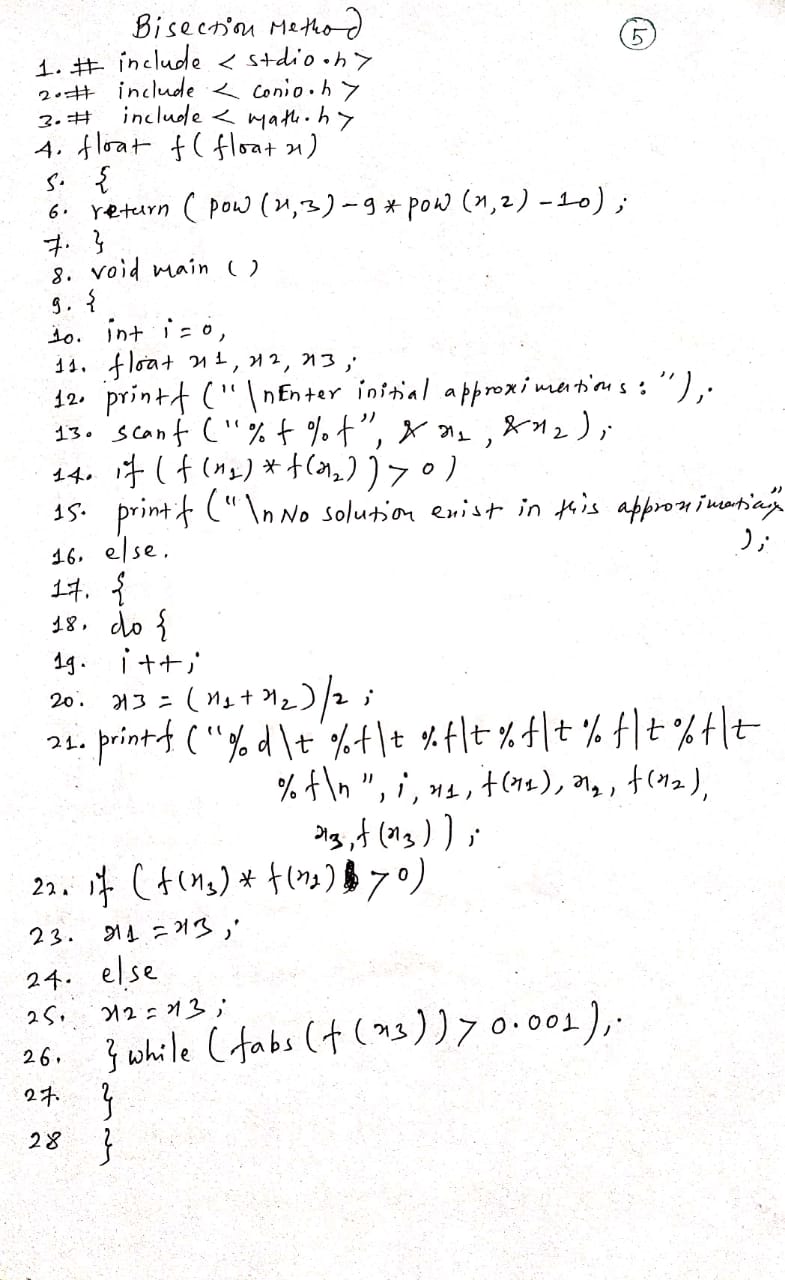 Bisection Method
5
1. # include < stdio.h >
2. # include < conio.h >
3. # include < math.h >
4. float f( float x)
5. {
6. return ( pow (x,3) - 9 * pow (x,2) - 10) ;
7. }
8. void main ( )
9. {
10. int i = 0,
11. float x1, x2, x3 ;
12. printf ("\nEnter initial approximations : ");
13. scanf ("%f %f", & x1 , &x2 );
14. if ( f (x1) * f(x2) ) > 0 )
15. printf ("\n No solution exist in this approximation"
);
16. else.
17. {
18. do {
19. i ++;
20. x3 = (x1 + x2) /2 ;
21. printf ("%d\t %f\t %f\t %f\t % f\t %f\t
%f\n ", i, x1, f(x1), x2, f(x2),
x3, f (x3) ) ;
22. if ( f(x3) * f(x1) > 0)
23. x1 = x3 ;
24. else
25. x2 = x3 ;
26. } while ( fabs ( f (x3)) > 0.001 );
27. }
28 }